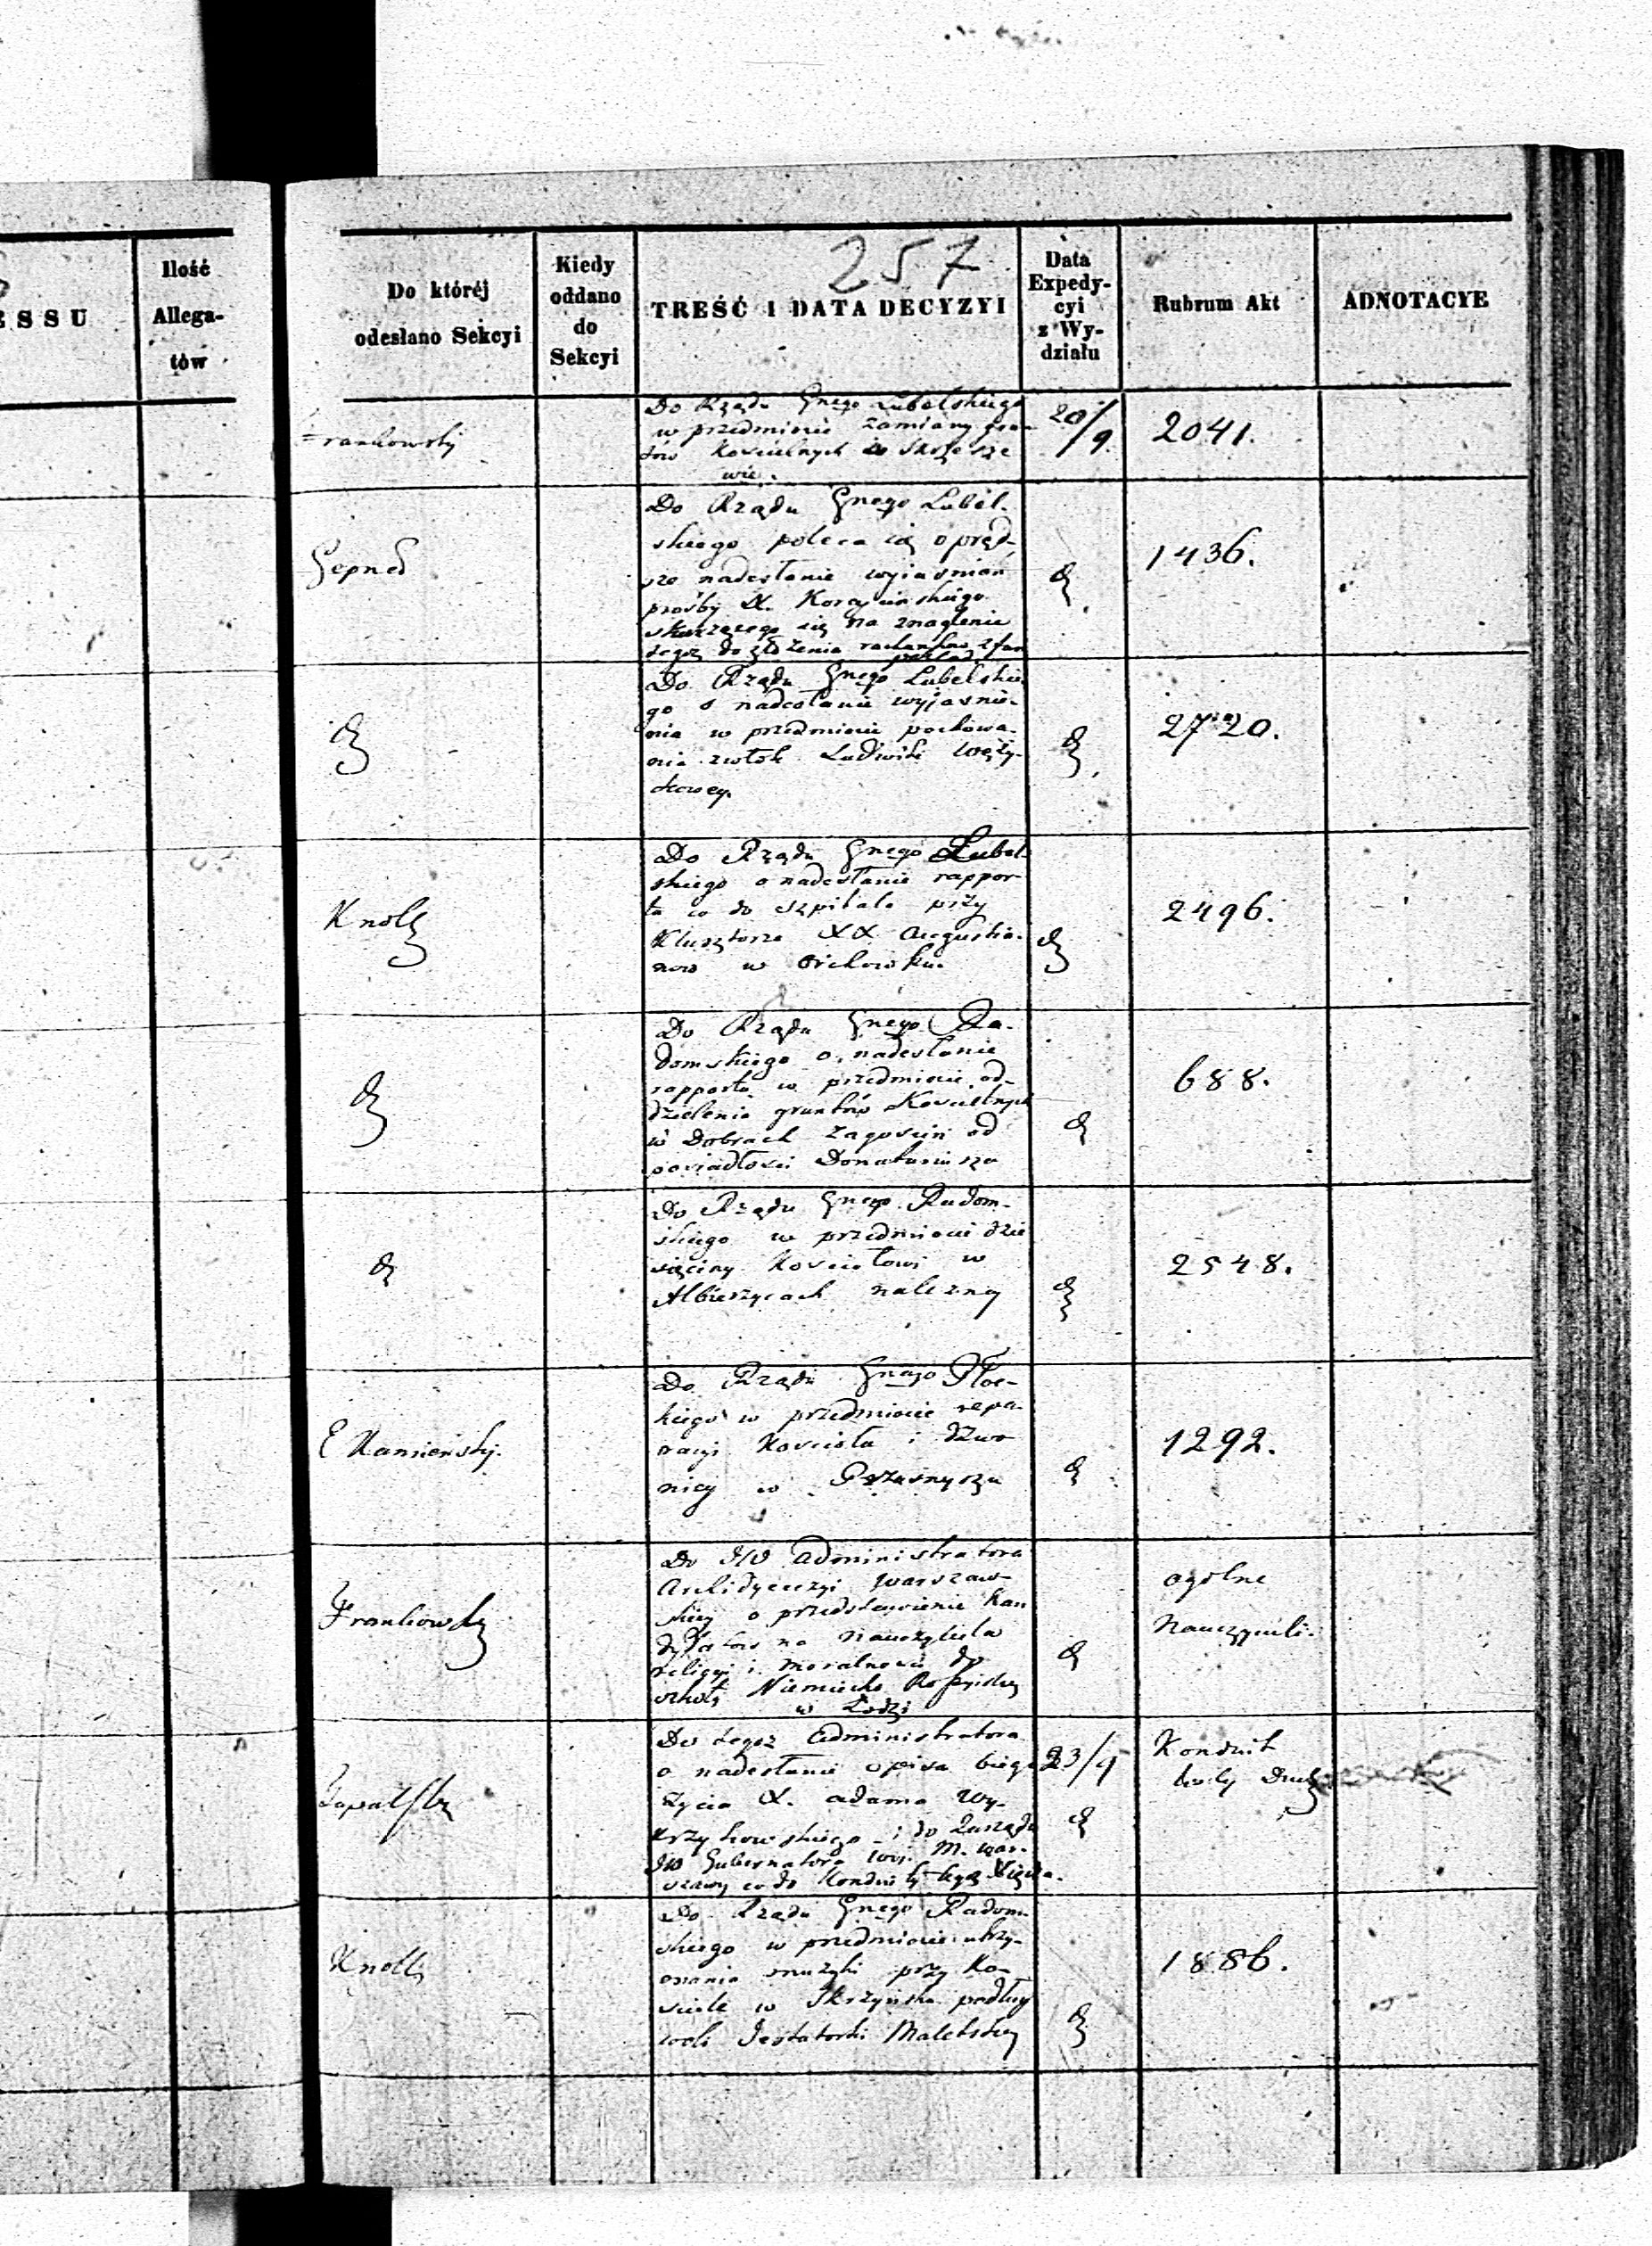 257
ESSU
Ilość
Allega-
tów
Do któréj
odesłano Sekcyi
Kiedy
oddano
do
Sekcyi
TREŚĆ I DATA DECYZYI
Data
Expedy-
cyi
z Wy-
działu
Rubrum Akt
ADNOTACYE
Frankowski
Do Rządu Gnego Lubelskiego
w przedmiocie zamiany grun-
tów Kościelnych w
wie.
20/9.
2041.
Do Rządu Gnego Lubel-
skiego poleca się o pręd-
sze nadesłanie wyjaśnień
prośby X.
skarżącego się na znaglenie
tegoż do złożenia rachunków z fun
1436.
Do Rządu Gnego Lubelskie
go o nadesłanie wyjaśnie-
nia w przedmiocie pochowa-
nia zwłok Ludwiki Węży-
kowey.
2720.
Knoll
Do Rządu Gnego Lubel-
skiego o nadesłanie rappor-
tu co do szpitala przy
Klasztorze XX Augustia-
nów w Orchowku.
2496.
Do Rządu Gnego Ra-
domskiego o nadesłanie
rapportu w przedmiocie od-
dzielenia gruntów Kościelnych
w Dobrach Zagość od
posiadłości Donatariusza
688.
Do Rządu Gnego Radom-
skiego w przedmiocie dzie
sięciny Kościołowi w
należney
2548.
E Kamieński.
Do Rządu Gnego Płoc-
kiego w przedmiocie repa-
racyi Kościoła i dzwo
nicy w Przasnyszu
1292.
Frankowski
Do JW Administratora
Archidyecezyi Warszaw-
skiey o przedstawienie Kan
dydatów na nauczyciela
religyi i moralności do
szkoły Niemiecko Rossyiskiey
w Łodzi
ogólne
Nauczycieli.
Do tegoż Administratora
o nadesłanie opisu biegu
życia X. Adama Wy-
krzykowskiego i do Zarządu
JW Gubernatora Woj. M. War-
szawy co do Konduity tegoż Xiędza.
23/9
Konduit
Knoll
Do Rządu Gnego Radom-
skiego w przedmiocie utrzy-
mania muzyki przy Ko-
ściele w Skrzyńsku podług
woli Testatorki
1886.